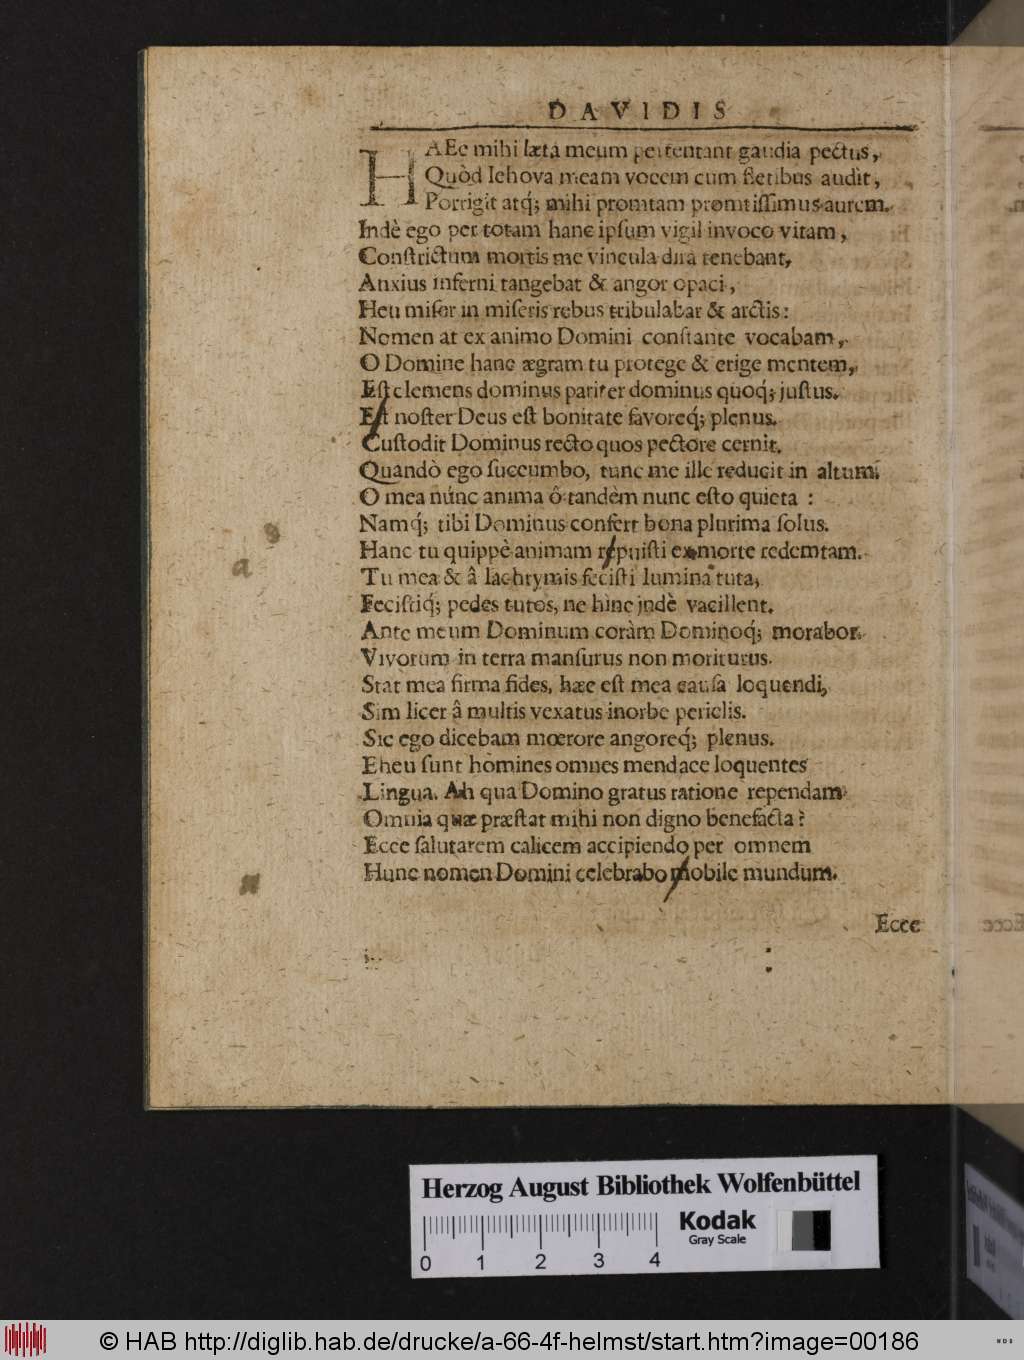 DAVIDIS
HAEc mihi læta meum pertentant gaudia pectus,
Quòd Iehova meam vocem cum fletibus audit,
Porrigit atq́; mihi promtam promtiſſimus aurem.
Indè ego per totam hanc ipſum vigil invoco vitam,
Conſtrictum mortis me vincula dira tenebant,
Anxius inferni tangebat & angor opaci,
Heu miſer in miſeris rebus tribulabar & arctis:
Nomen at ex animo Domini conſtante vocabam,
O Domine hanc ægram tu protege & erige mentem,
Eſt clemens dominus pariter dominus quoq́; juſtus.
Eſt noſter Deus eſt bonitate favoreq́; plenus.
Cuſtodit Dominus recto quos pectore cernit.
Quandò ego ſuccumbo, tunc me ille reducit in altum.
O mea núnc anima ô tandèm nunc eſto quieta :
Namq́; tibi Dominus confert bona plurima ſolus.
Hanc tu quippè animam rapuiſti ex morte redemtam.
Tu mea & â lachrymis feciſti lumina tuta,
Feciſtiq́; pedes tutos, ne hinc indè vacillent.
Ante meum Dominum coràm Dominoq́; morabor.
Vivorum in terra manſurus non moriturus.
Stat mea firma fides, hæc eſt mea cauſa loquendi,
Sim licet â multis vexatus in orbe periclis.
Sic ego dicebam mœrore angoreq́; plenus.
Eheu ſunt homines omnes mendace loquentes
Lingua. Ah qua Domino gratus ratione rependam
Omnia quæ præſtat mihi non digno benefacta?
Ecce ſalutarem calicem accipiendo per omnem
Hunc nomen Domini celebrabo mobile mundum.
Ecce
Herzog August Bibliothek Wolfenbüttel
Kodak
Gray Scale
0 1 2 3 4
© HAB http://diglib.hab.de/drucke/a-66-4f-helmst/start.htm?image=00186